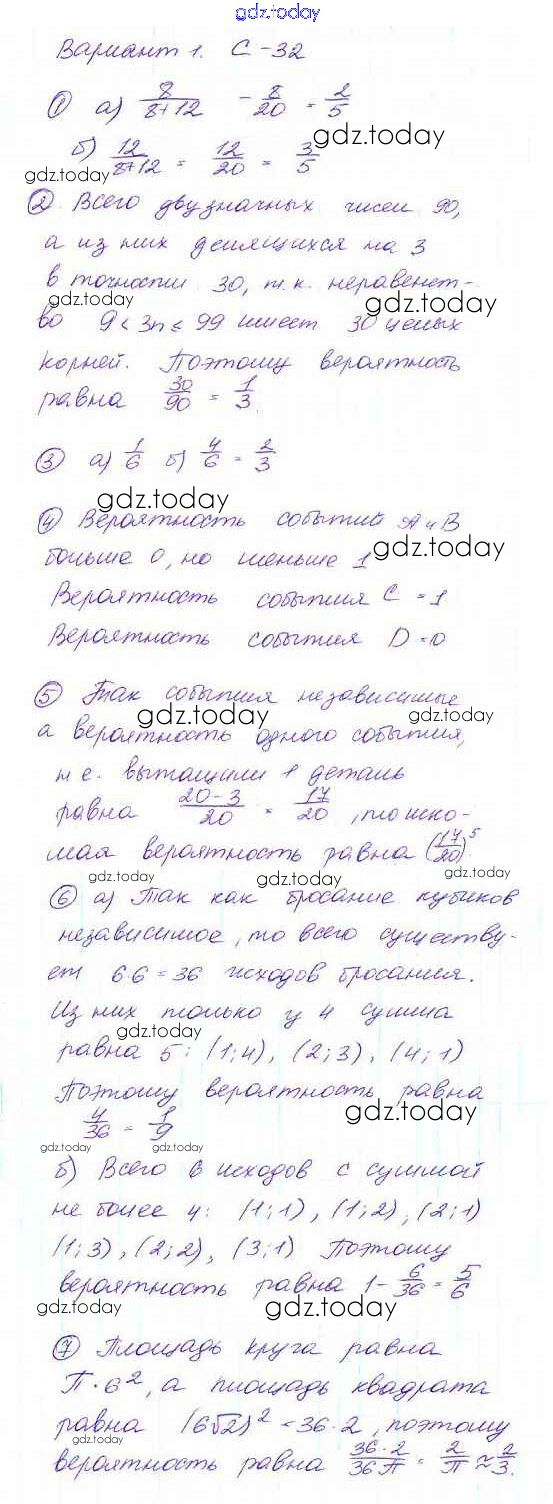 gdz.today
Вариант 1. С-32
① а) 8/8+12 - 8/20 = 2/5
gdz.today
б) 12/8+12 = 12/20 = 3/5
gdz.today
② Всего двузначных чисел 90,
а из них делящихся на 3
в точности 30, т.к. неравенст-
gdz.today gdz.today
во 9 < 3n ≤ 99 имеет 30 целых
корней. Поэтому вероятность
равна 30/90 = 1/3.
③ а) 1/6 б) 4/6 = 2/3
gdz.today
④ Вероятность событий А и В
gdz.today
больше 0, но меньше 1
Вероятность события С = 1
Вероятность события D = 0
⑤ Так события независимые
gdz.today gdz.today
а вероятность одного события,
т.е. вытащили 1 деталь
равна 20-3/20 = 17/20, то иско-
мая вероятность равна (17/20)⁵
gdz.today gdz.today
⑥ а) Так как бросание кубиков
независимое, то всего существу-
ет 6·6 = 36 исходов бросания.
Из них только у 4 сумма
gdz.today
равна 5: (1;4), (2;3), (4;1)
Поэтому вероятность равна
gdz.today
4/36 = 1/9
gdz.today gdz.today
б) Всего 6 исходов с суммой
не более 4: (1;1), (1;2), (2;1)
(1;3), (2;2), (3;1) Поэтому
вероятность равна 1 - 6/36 = 5/6
gdz.today gdz.today
⑦ Площадь круга равна
П·6², а площадь квадрата
равна (6√2)² = 36·2, поэтому
gdz.today
вероятность равна 36·2/36П = 2/П ≈ 2/3.